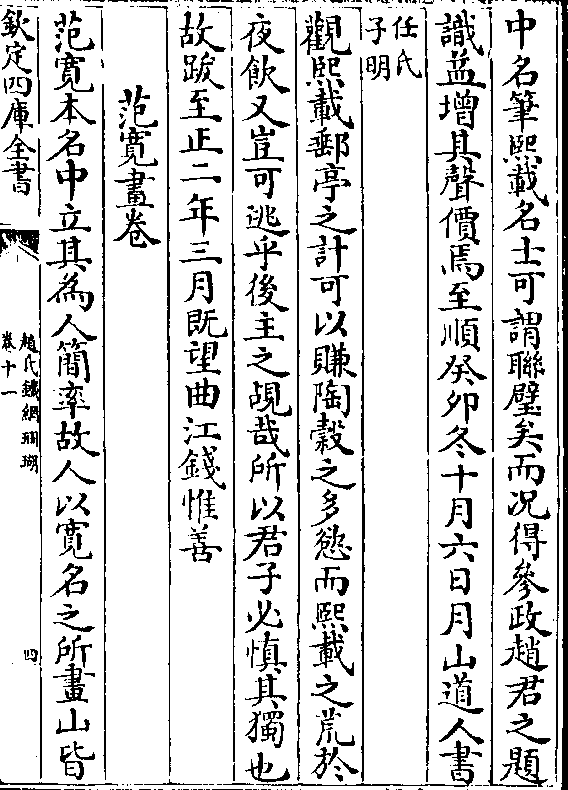 中名筆熙載名士可謂聯璧矣而况得參政趙君之題
識益增其聲價焉至順癸卯冬十月六日月山道人書
任氏
子明
觀熙載郵亭之計可以賺陶穀之多慾而熙載之荒於
夜飲又豈可逃乎後主之覘哉所以君子必慎其獨也
故跋至正二年三月既望曲江錢惟善
范寬畫卷
范寬本名中立其為人簡率故人以寛名之所畫山皆
欽定四庫全書
趙氏鐵網珊瑚
卷十一
四